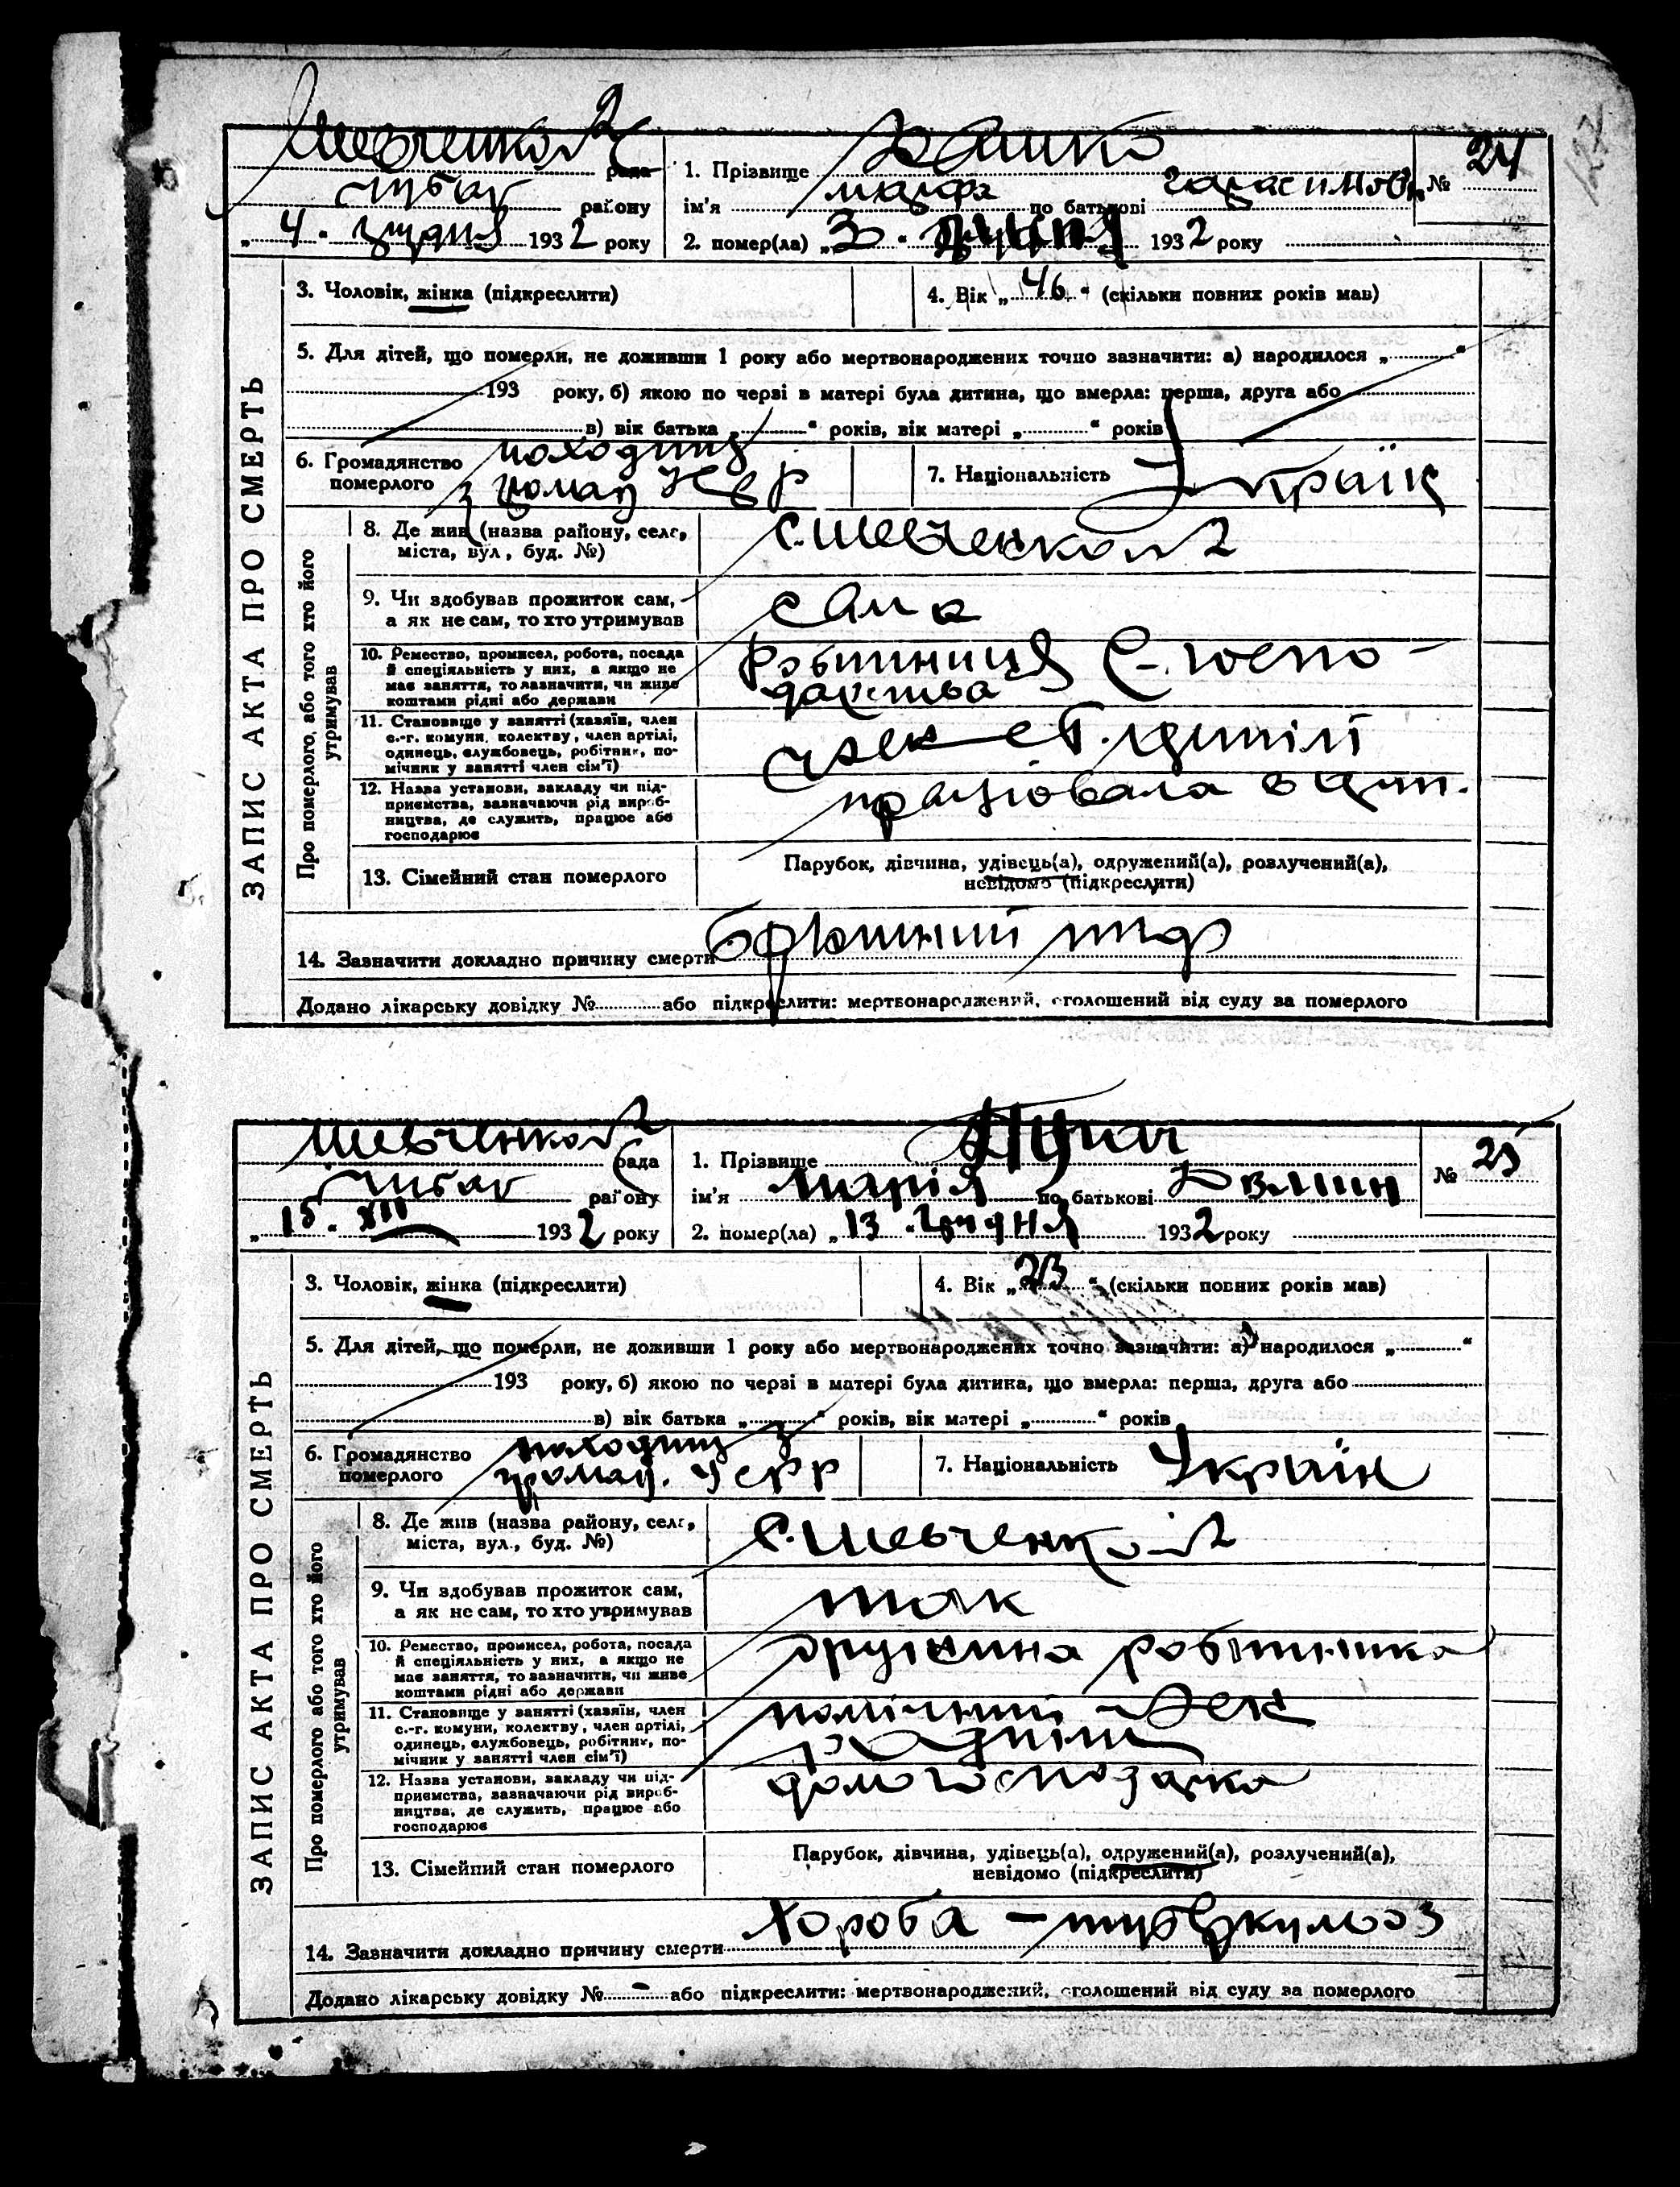 ЗАПИС АКТА ПРО СМЕРТЬ
Шевченко 2 рада
Чубар району
„4“ грудня 1932 року
1. Прізвище
№ 24
ім'я по батькові Гарасимов
2. помер(ла) „3“ грудня 1932 року
3. Чоловік, жінка (підкреслити)
4. Вік „46“ (скільки повних років мав)
5. Для дітей, що померли, не доживши 1 року або мертвонароджених точно зазначити: а) народилося „ “
193 року, б) якою по черзі в матері була дитина, що вмерла: перша, друга або
в) вік батька „ “ років, вік матері „ “ років
6. Громадянство походить
померлого з громад УСРР
7. Національність Україн
Про померлого, або того хто його утримував
8. Де жив (назва району, селс, с. Шевченко 2
міста, вул, буд. №)
9. Чи здобував прожиток сам, сама
а як не сам, то хто утримував
10. Ремество, промисел, робота, посада робітниця с. госпо-
й спеціяльність у них, а якщо не дарства
має заняття, то зазначити, чи живе
коштами рідні або держави
11. Становище у занятті (хазяїн, член член с.г. артілі
с.-г. комуни, колективу, член артілі,
одинець, службовець, робітник, по-
мічник у занятті член сім'ї)
12. Назва установи, закладу чи під- працювала в арт.
приємства, зазначаючи рід вироб-
ництва, де служить, працює або
господарює
13. Сімейний стан померлого
Парубок, дівчина, удівець(а), одружений(а), розлучений(а),
невідомо (підкреслити)
14. Зазначити докладно причину смерти брюшний тиф
Додано лікарську довідку № або підкреслити: мертвонароджений, оголошений від суду за померлого
ЗАПИС АКТА ПРО СМЕРТЬ
Шевченко 2 рада
Чубар району
„15“ XII 1932 року
1. Прізвище
№ 25
ім'я Марія по батькові
2. помер(ла) „13“ грудня 1932 року
3. Чоловік, жінка (підкреслити)
4. Вік „23“ (скільки повних років мав)
5. Для дітей, що померли, не доживши 1 року або мертвонароджених точно зазначити: а) народилося „ “
193 року, б) якою по черзі в матері була дитина, що вмерла: перша, друга або
в) вік батька „ “ років, вік матері „ “ років
6. Громадянство походить з
померлого громад. УСРР
7. Національність Україн
Про померлого або того хто його утримував
8. Де жив (назва району, селс, с. Шевченко 2
міста, вул., буд. №)
9. Чи здобував прожиток сам, так
а як не сам, то хто утримував
10. Ремество, промисел, робота, посада дружина робітника
й спеціяльність у них, а якщо не
має заняття, то зазначити, чи живе
коштами рідні або держави
11. Становище у занятті (хазяїн, член помічниця
с.-г. комуни, колективу, член артілі,
одинець, службовець, робітник, по-
мічник у занятті член сім'ї)
12. Назва установи, закладу чи під- домогосподарка
приємства, зазначаючи рід вироб-
ництва, де служить, працює або
господарює
13. Сімейний стан померлого
Парубок, дівчина, удівець(а), одружений(а), розлучений(а),
невідомо (підкреслити)
14. Зазначити докладно причину смерти Хороба – туберкульоз
Додано лікарську довідку № – або підкреслити: мертвонароджений, оголошений від суду за померлого